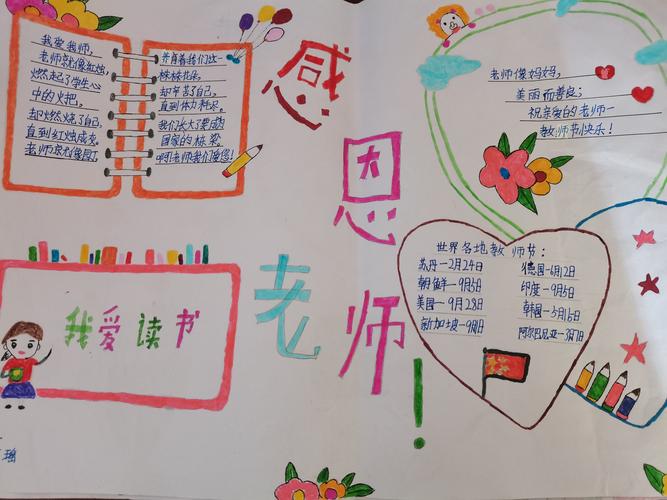 我爱我师，
老师就像红烛，
燃起了学生心
中的火把，
却燃烧了自己，
直到红烛成灰，
老师就像园丁
养育着我们这一
株株花朵，
却辛苦了自己，
直到体力耗尽，
我们长大了要成为
国家的栋梁，
啊！老师我们爱您！
感
恩
老
师
！
老师像妈妈，
美丽而善良；
祝亲爱的老师—
教师节快乐！
我爱读书
世界各地教师节：
苏丹—2月24日
朝鲜—9月5日
美国—9月28日
新加坡—9月1日
德国—6月12日
印度—9月5日
韩国—5月16日
阿尔巴尼亚—3月7日
瑶